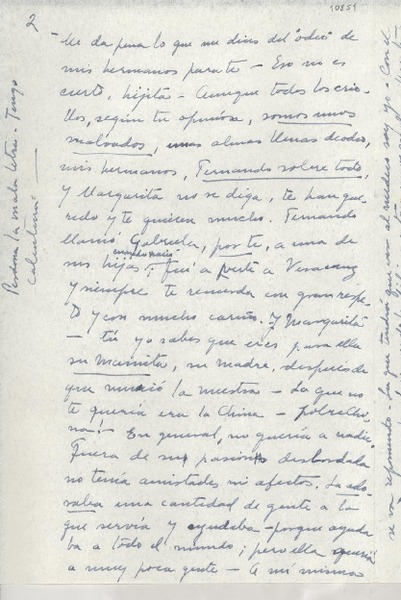 2
10851
Me da pena lo que me dices del "odio" de
mis hermanos para ti - Eso no es
cierto, hijita - Aunque todos los crio-
llos, según tu opinión, somos unos
malvados, unas almas llenas de odio,
mis hermanos, Fernando sobre todo,
y Margarita no se diga, te han que-
rido y te quieren mucho. Fernando
llamó Gabriela, por ti, a una de
sus hijas; cuando nació fué a verte a Veracruz
y siempre te recuerda con gran respe-
to y con mucho cariño. Y Margarita
- tú ya sabes que eres para ella
su Mamita, su madre, después de
que murió la nuestra - La que no
te quería era la China - Pobrecho-
na! - En general, no quería a nadie
Fuera de su pasión desbordada
no tenía amistades ni afectos. La ado-
raba una cantidad de gente a la
que servía y ayudaba - porque ayuda
ba a todo el mundo; pero ella quería
a muy poca gente - A mí misma
Perdona la mala letra - Tengo
calentura
se va reponiendo - La que tendrá que ver al médico soy yo - Con el